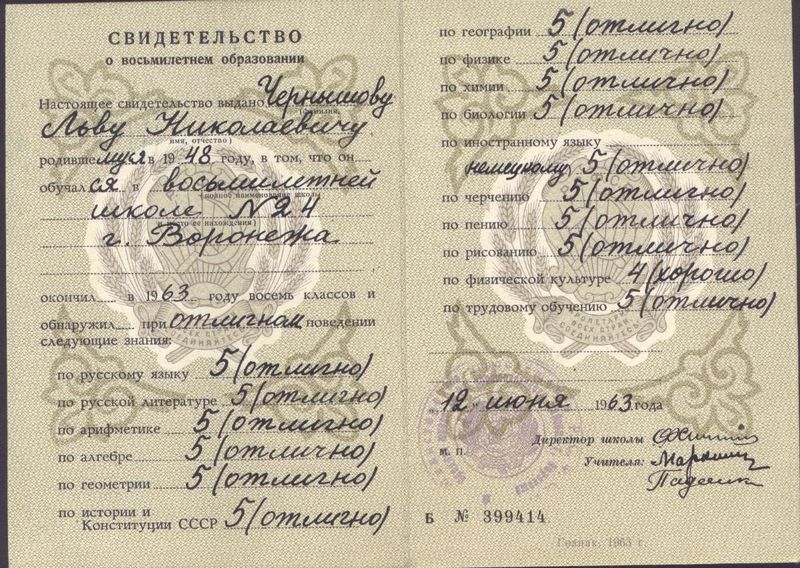 СВИДЕТЕЛЬСТВО
о восьмилетнем образовании
Настоящее свидетельство выдано Чернышову
(фамилия,
Льву Николаевичу
имя, отчество)
родившемуся в 1948 году, в том, что он
обучался в восьмилетней
(полное наименование школы
школе N 24
и место ее нахождения)
г. Воронежа
окончил в 1963 году восемь классов и
обнаружил при отличном поведении
следующие знания:
по русскому языку 5 (отлично)
по русской литературе 5 (отлично)
по арифметике 5 (отлично)
по алгебре 5 (отлично)
по геометрии 5 (отлично)
по истории и
Конституции СССР 5 (отлично)
по географии 5 (отлично)
по физике 5 (отлично)
по химии 5 (отлично)
по биологии 5 (отлично)
по иностранному языку
немецкому 5 (отлично)
по черчению 5 (отлично)
по пению 5 (отлично)
по рисованию 5 (отлично)
по физической культуре 4 (хорошо)
по трудовому обучению 5 (отлично)
12 июня 1963 года
Директор школы
М. П.
Учителя:
Б № 399414
Гознак. 1963 г.